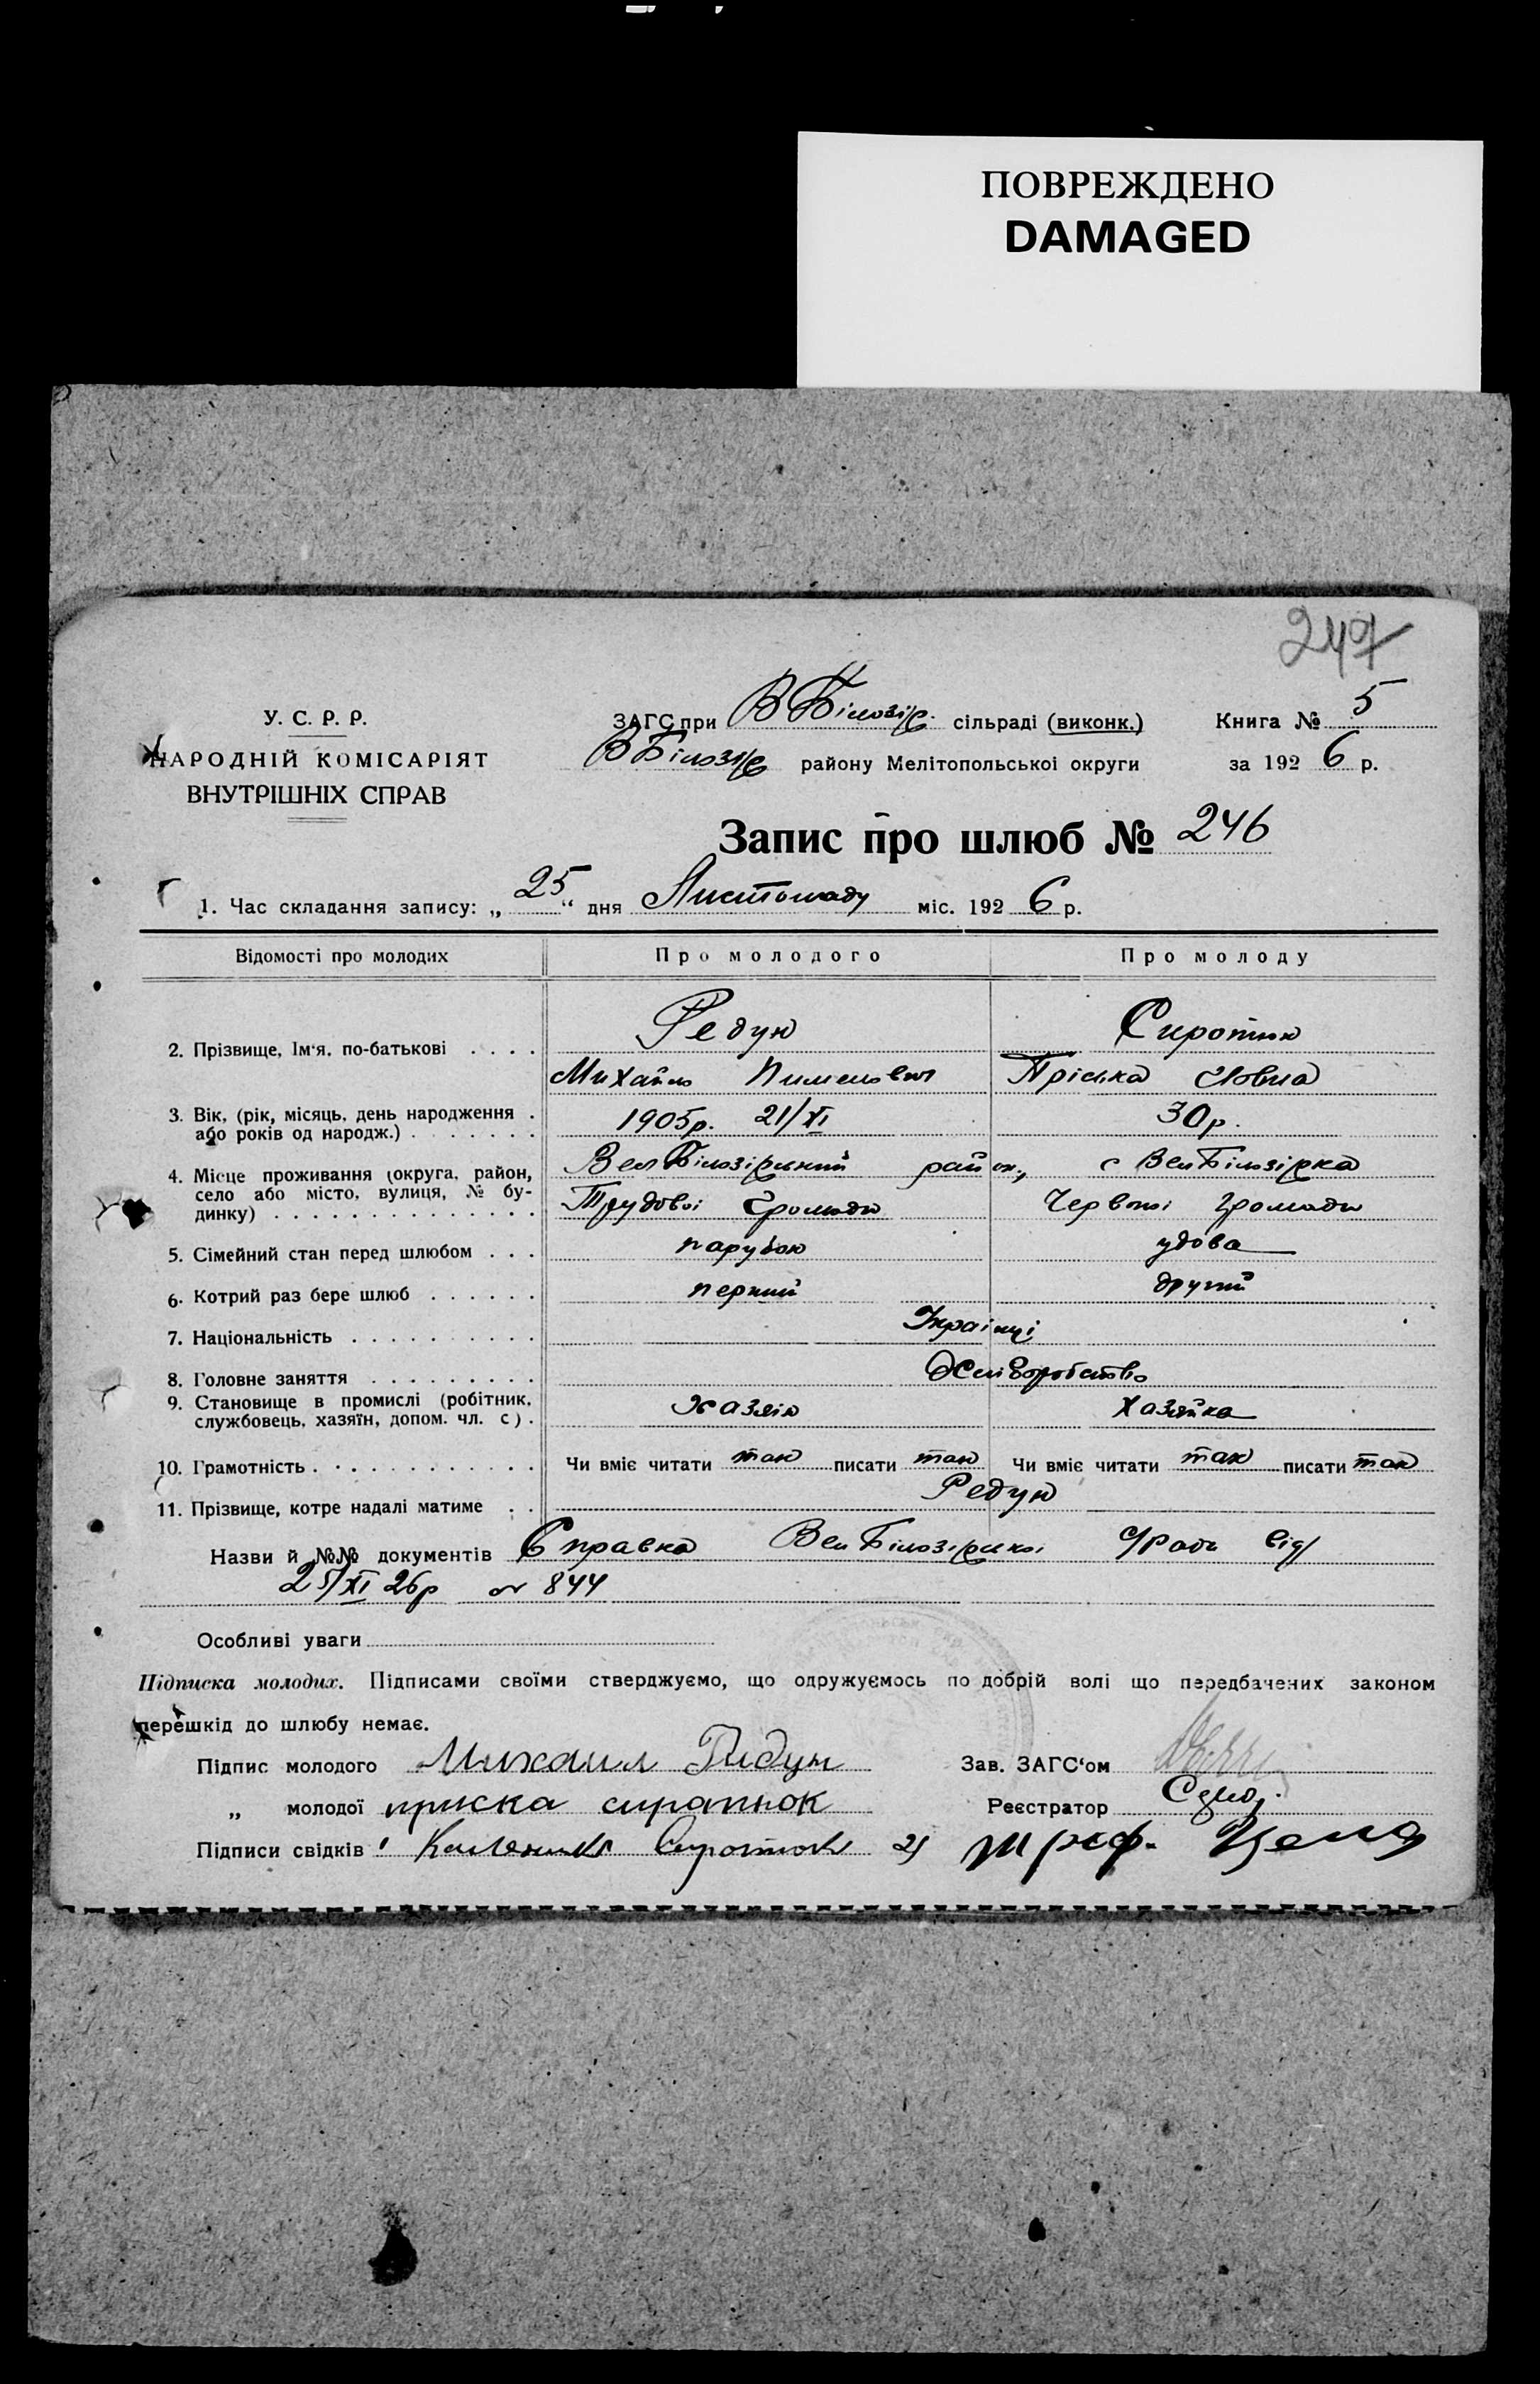 ПОВРЕЖДЕНО
DAMAGED
247
У. С. Р. Р.
НАРОДНІЙ КОМІСАРІЯТ
ВНУТРІШНІХ СПРАВ
ЗАГС при В Білозір. сільраді (виконк.) Книга № 5
В Білозір району Мелітопольської округи за 1926 р.
Запис про шлюб № 246
1. Час складання запису: „25“ дня Листопаду міс. 1926 р.
Відомості про молодих Про молодого Про молоду
2. Прізвище, Ім‘я, по-батькові . . . . Редун Сиротюк
Михайло Пименович Пріська
3. Вік, (рік, місяць, день народження . або років од народж.) . . . . . . . 1905р. 21/XI 30р.
4. Місце проживання (округа, район, село або місто, вулиця, № будинку) . . . . . . . . . . . . . . Вел Білозірський район, с Вел Білозірка
Трудової Громади Червоної громади
5. Сімейний стан перед шлюбом . . . парубок удова
6. Котрий раз бере шлюб . . . . . . перший другий
7. Національність . . . . . . . . . . Українці
8. Головне заняття . . . . . . . . . Хліборобство
9. Становище в промислі (робітник, службовець, хазяїн, допом. чл. с) . хазяїн Хазяйка
10. Грамотність . . . . . . . . . . . . Чи вміє читати так писати так Чи вміє читати так писати так
11. Прізвище, котре надалі матиме . . Редун
Назви й №№ документів Справка Вел Білозірської с/ради від
25/XI 26р № 844
Особливі уваги
Підписка молодих. Підписами своїми стверджуємо, що одружуємось по добрій волі що передбачених законом
перешкід до шлюбу немає.
Підпис молодого Михаил Ридун Зав. ЗАГС‘ом
„ молодої приска сиратюк Реєстратор
Підписи свідків 1 Сиротюк 2)